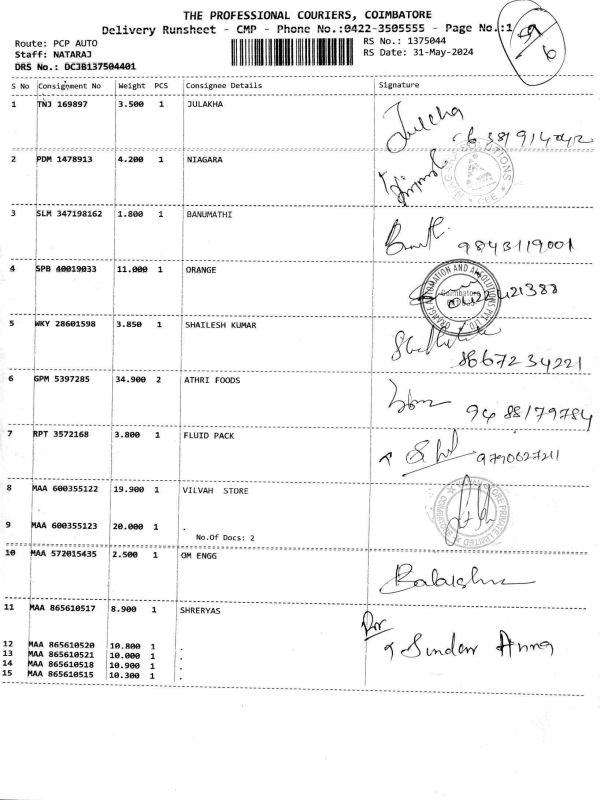 THE PROFESSIONAL COURIERS, COIMBATORE
Delivery Runsheet - CMP - Phone No.:0422-3505555 - Page No.:1
Route: PCP AUTO
Staff: NATARAJ
DRS No.: DCJB137504401
RS No.: 1375044
RS Date: 31-May-2024
S No Consignment No Weight PCS Consignee Details Signature
1 TNJ 169897 3.500 1 JULAKHA
Julekha
2 PDM 1478913 4.200 1 NIAGARA
3 SLM 347198162 1.800 1 BANUMATHI
9843119001
4 SPB 40019033 11.000 1 ORANGE
5 WKY 28601598 3.850 1 SHAILESH KUMAR
8667234221
6 GPM 5397285 34.900 2 ATHRI FOODS
9488179784
7 RPT 3572168 3.800 1 FLUID PACK
8 MAA 600355122 19.900 1 VILVAH STORE
9 MAA 600355123 20.000 1 .
No.Of Docs: 2
10 MAA 572015435 2.500 1 OM ENGG
11 MAA 865610517 8.900 1 SHRERYAS
12 MAA 865610520 10.800 1 .
13 MAA 865610521 10.000 1 .
14 MAA 865610518 10.900 1 .
15 MAA 865610515 10.300 1 .